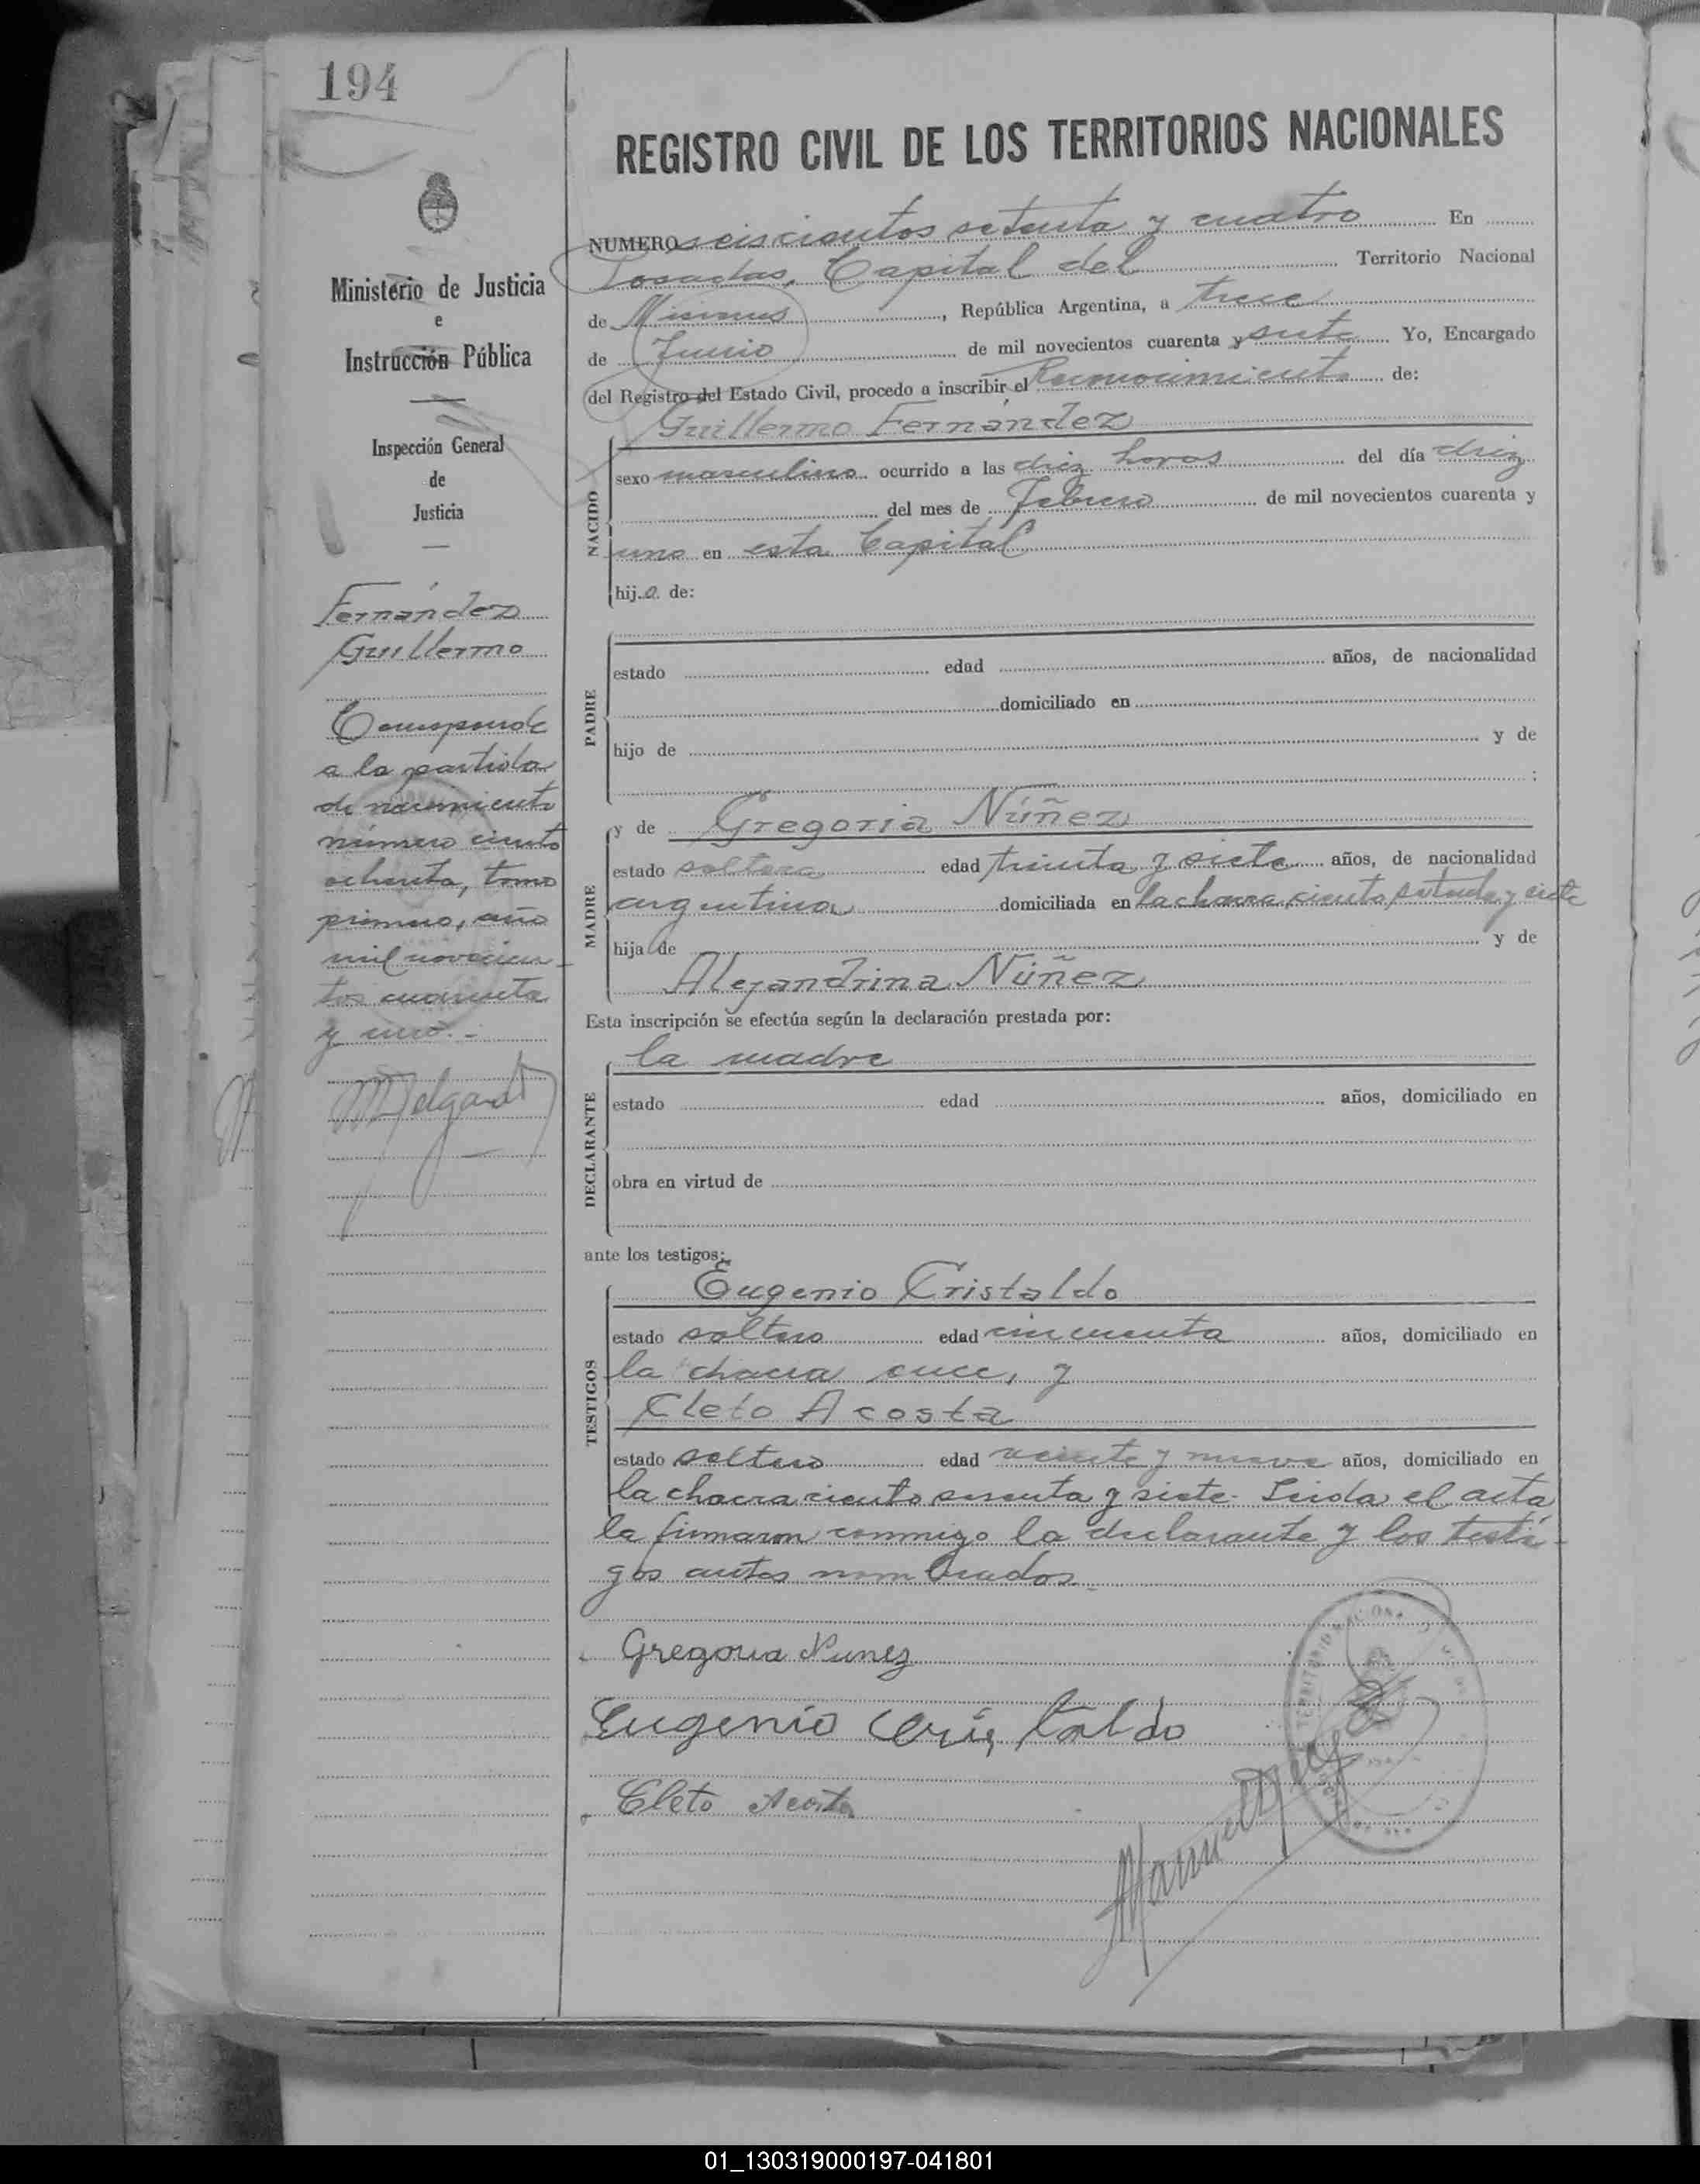 194
REGISTRO CIVIL DE LOS TERRITORIOS NACIONALES
NUMERO seiscientos setenta y cuatro En
Posadas, Capital del Territorio Nacional
de Misiones, República Argentina, a trece
de Junio de mil novecientos cuarenta y siete Yo, Encargado
del Registro del Estado Civil, procedo a inscribir el Reconocimiento de:
Ministerio de Justicia
e
Instrucción Pública
Inspección General
de
Justicia
Fernández
Guillermo
Corresponde
a la partida
de nacimiento
número ciento
ochenta, tomo
primero, año
mil novecien-
tos cuarenta
y uno.-
MDelgado
NACIDO
Guillermo Fernández
sexo masculino ocurrido a las diez horas del día diez
del mes de Febrero de mil novecientos cuarenta y
uno en esta Capital
hijo de:
PADRE
estado edad años, de nacionalidad
domiciliado en
hijo de y de
;
MADRE
y de Gregoria Núñez
estado soltera edad treinta y siete años, de nacionalidad
argentina domiciliada en la chacra ciento setenta y siete
hija de y de
Alejandrina Núñez
Esta inscripción se efectúa según la declaración prestada por:
DECLARANTE
la madre
estado edad años, domiciliado en
obra en virtud de
ante los testigos:
TESTIGOS
Eugenio Cristaldo
estado soltero edad cincuenta años, domiciliado en
la chacra once, y
Cleto Acosta
estado soltero edad veinte y nueve años, domiciliado en
la chacra ciento sesenta y siete. Leida el acta
la firmaron conmigo la declarante y los testi-
gos antes nombrados.
Gregoria Nunez
Eugenio Cristaldo
Cleto Acosta
Manuel Delgado
TERRITORIO NACIONAL
01_130319000197-041801